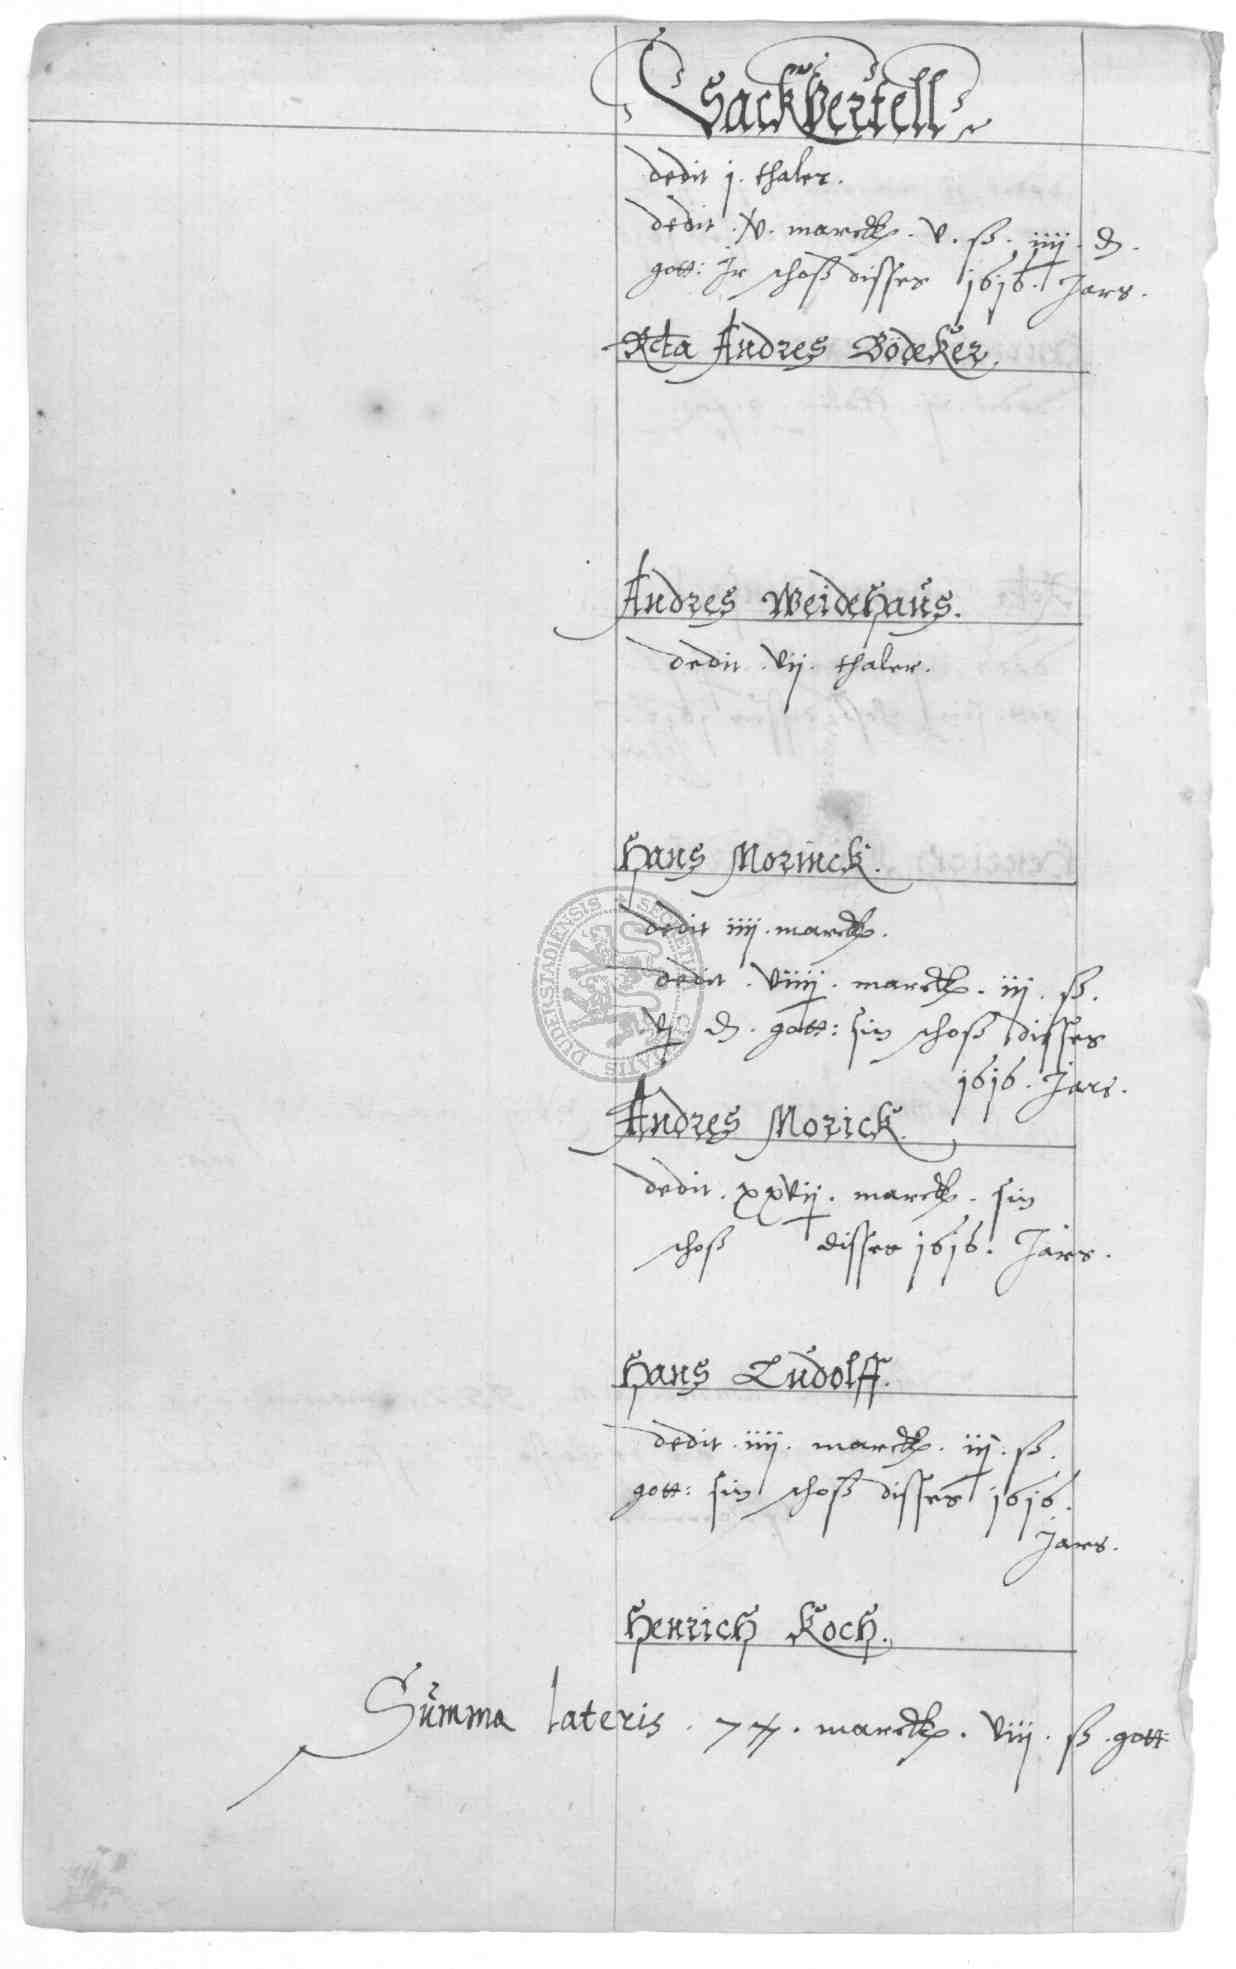 Sackvertell
dedit j. thaler.
dedit . v. marck . v. ß. iiij . d.
gott: Jr schoß disses 1616. Jars.
Rcta Andres Bödeker.
Andres Weidehaus.
dedit . vij. thaler.
Hans Morinck.
dedit iiij . marck.
dedit . viiij . marck . iij . ß.
d . gott: sin schoß disses
1616 . Jars.
Andres Morick.
dedit . xxvij . marck . sin
schoß disses 1616 . Jars.
Hans Ludolff.
dedit . iiij . marck . iij . ß.
gott: sin schoß disses 1616.
Jars.
Henrich Koch.
Summa lateris . marck . viij . ß . gott
DUDERSTADIENSIS SECRETU CIVITATIS